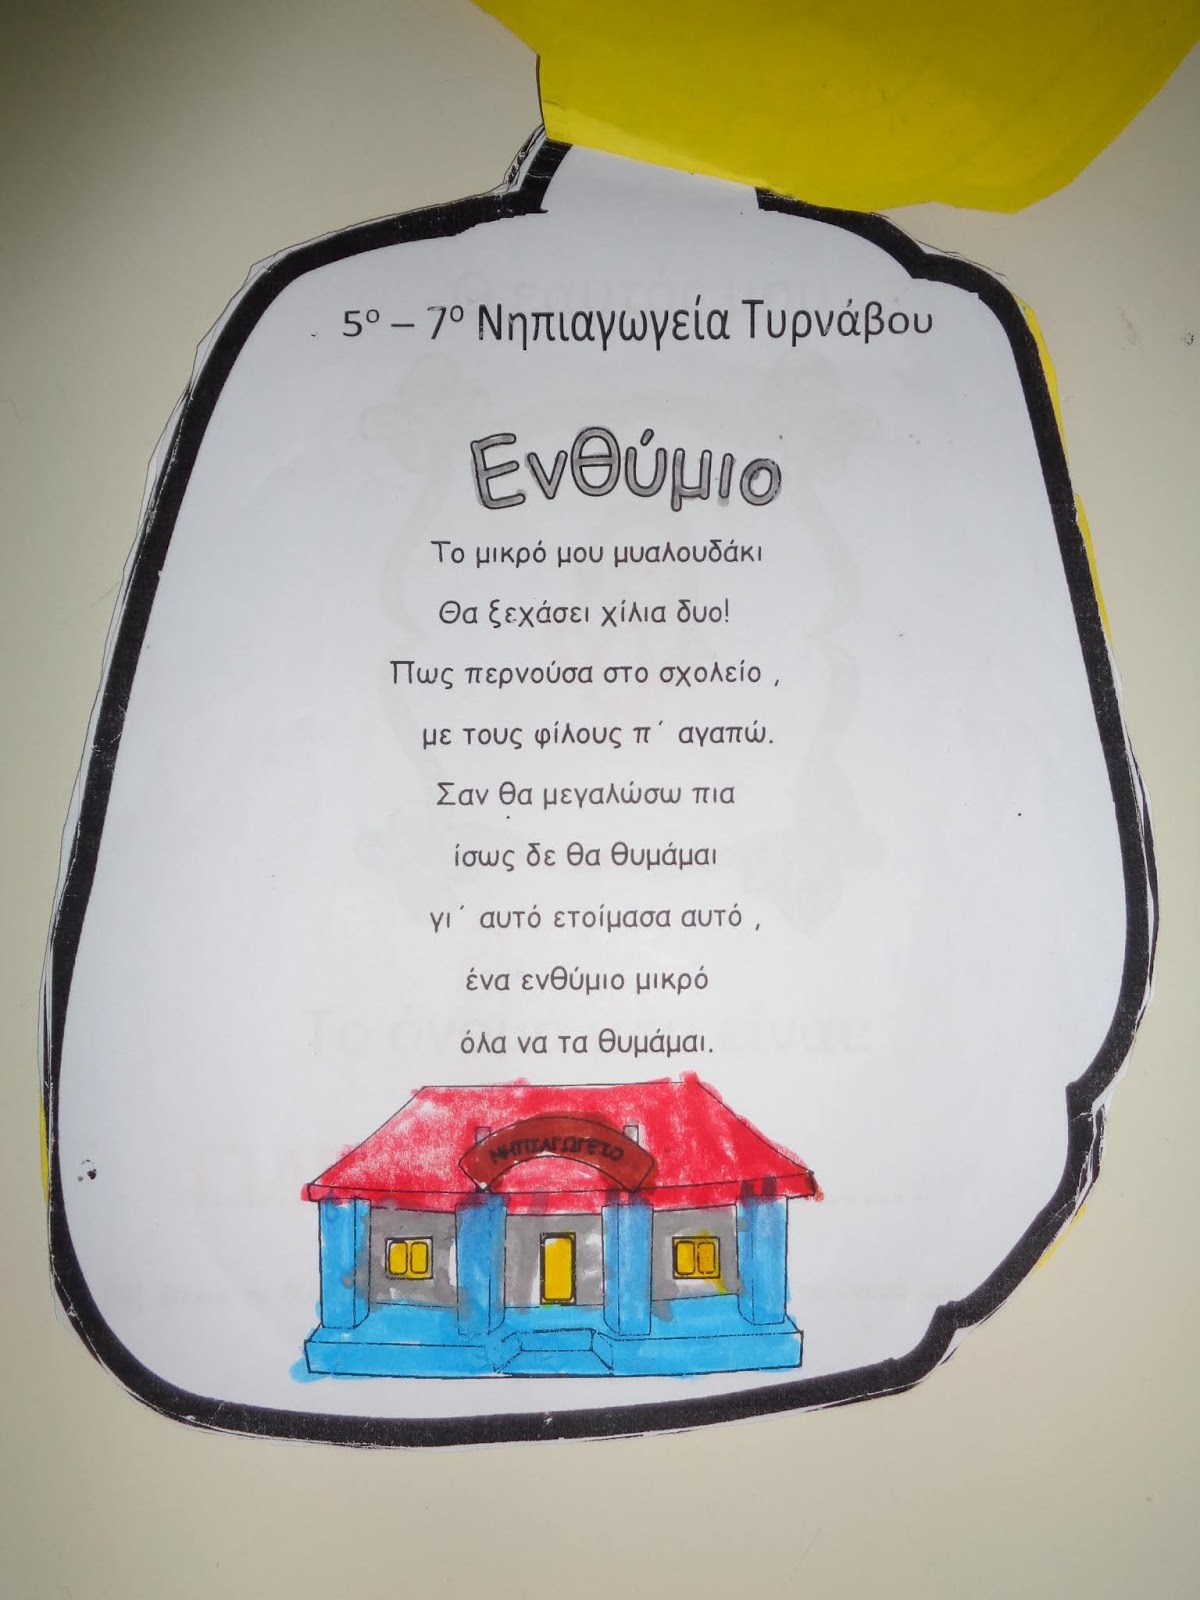 5ο – 7ο Νηπιαγωγεία Τυρνάβου
Ενθύμιο
Το μικρό μου μυαλουδάκι
Θα ξεχάσει χίλια δυο!
Πως περνούσα στο σχολείο ,
με τους φίλους π΄ αγαπώ.
Σαν θα μεγαλώσω πια
ίσως δε θα θυμάμαι
γι΄ αυτό ετοίμασα αυτό ,
ένα ενθύμιο μικρό
όλα να τα θυμάμαι.
ΝΗΠΙΑΓΩΓΕΙΟ